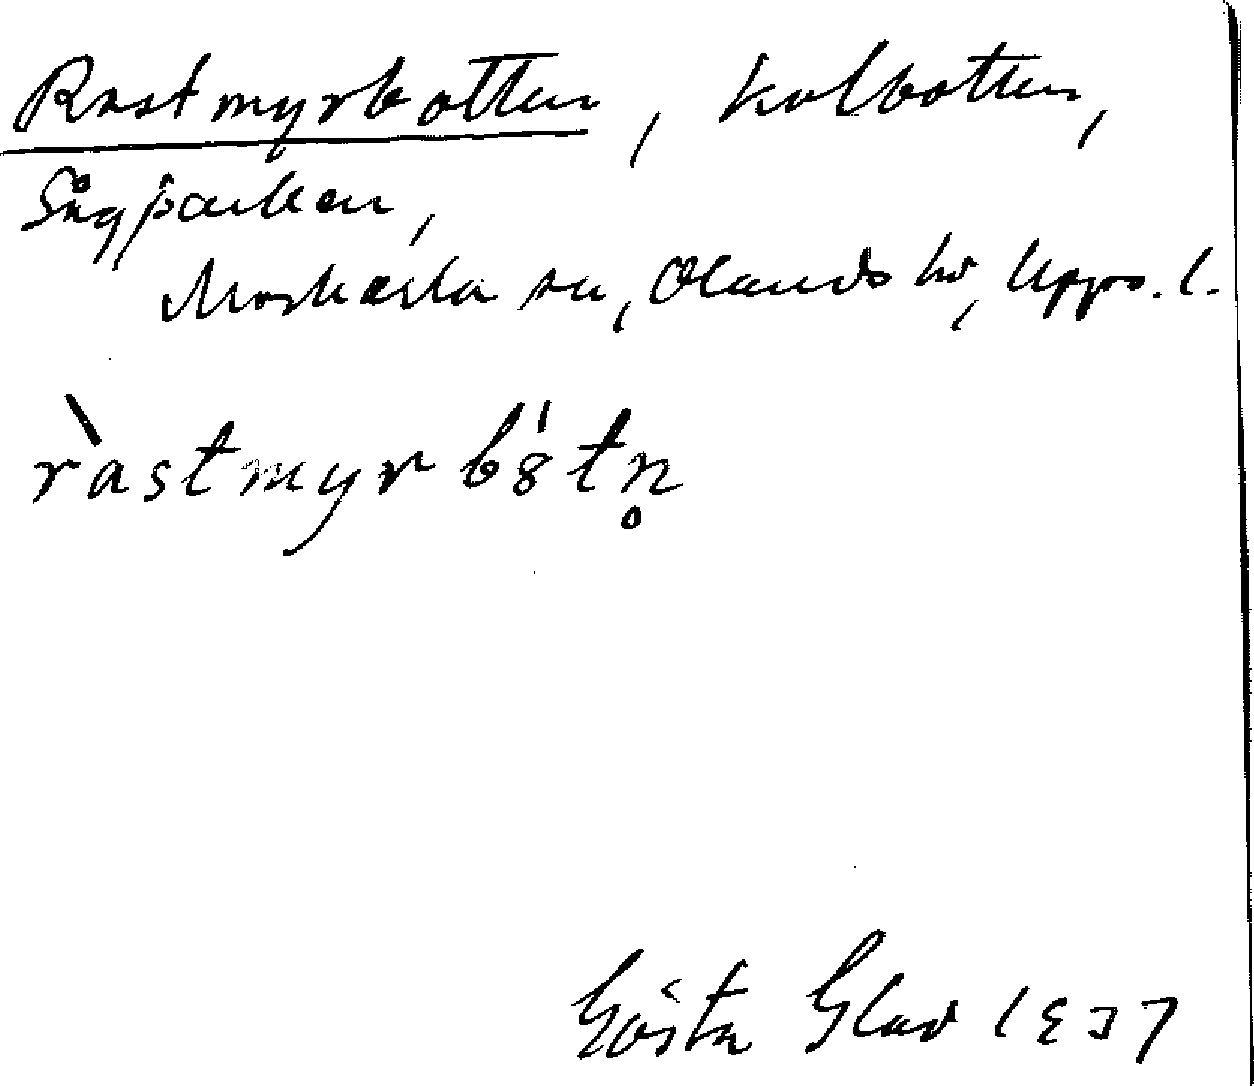 Rastmyrbotten, kolbotten,
Sågparken,
Morkarla sn, Olands hd, Upps. l.
ràstmyrbꞌ8tn̥
Gösta Glad 1937